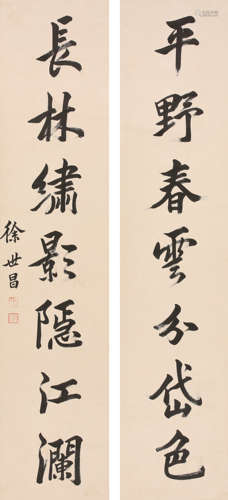 平野春雲分岱色
長林繡影隱江瀾
徐世昌